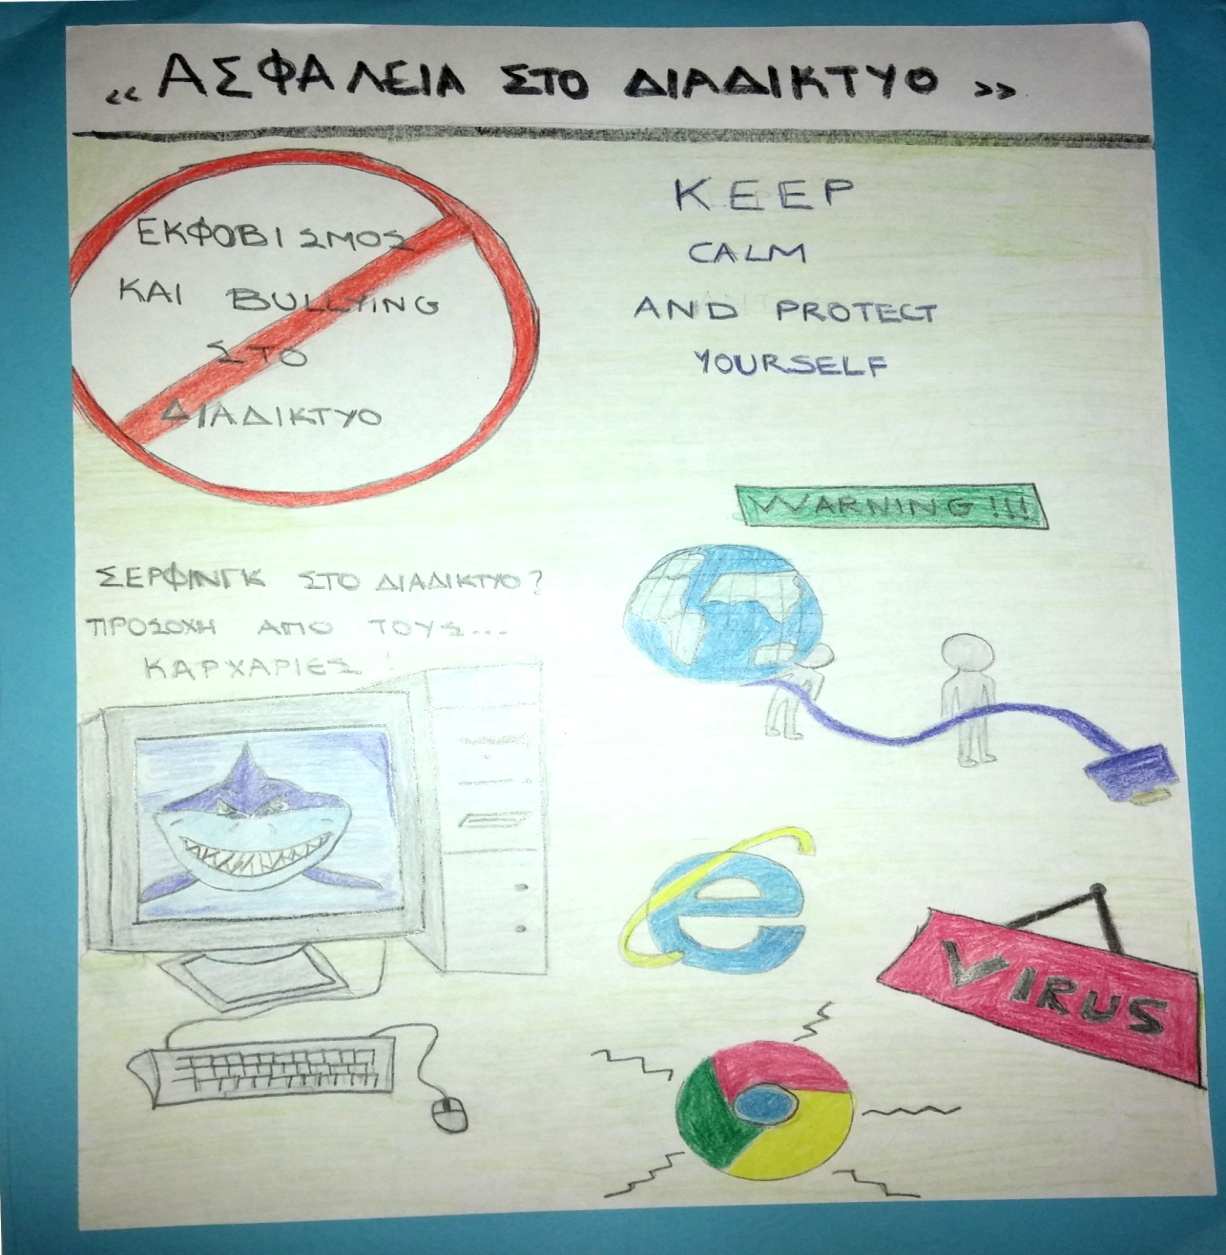 «ΑΣΦΑΛΕΙΑ ΣΤΟ ΔΙΑΔΙΚΤΥΟ»
ΕΚΦΟΒΙΣΜΟΣ
ΚΑΙ BULLYING
ΣΤΟ
ΔΙΑΔΙΚΤΥΟ
KEEP
CALM
AND PROTECT
YOURSELF
WARNING!!!
ΣΕΡΦΙΝΓΚ ΣΤΟ ΔΙΑΔΙΚΤΥΟ?
ΠΡΟΣΟΧΗ ΑΠΟ ΤΟΥΣ...
ΚΑΡΧΑΡΙΕΣ!
VIRUS